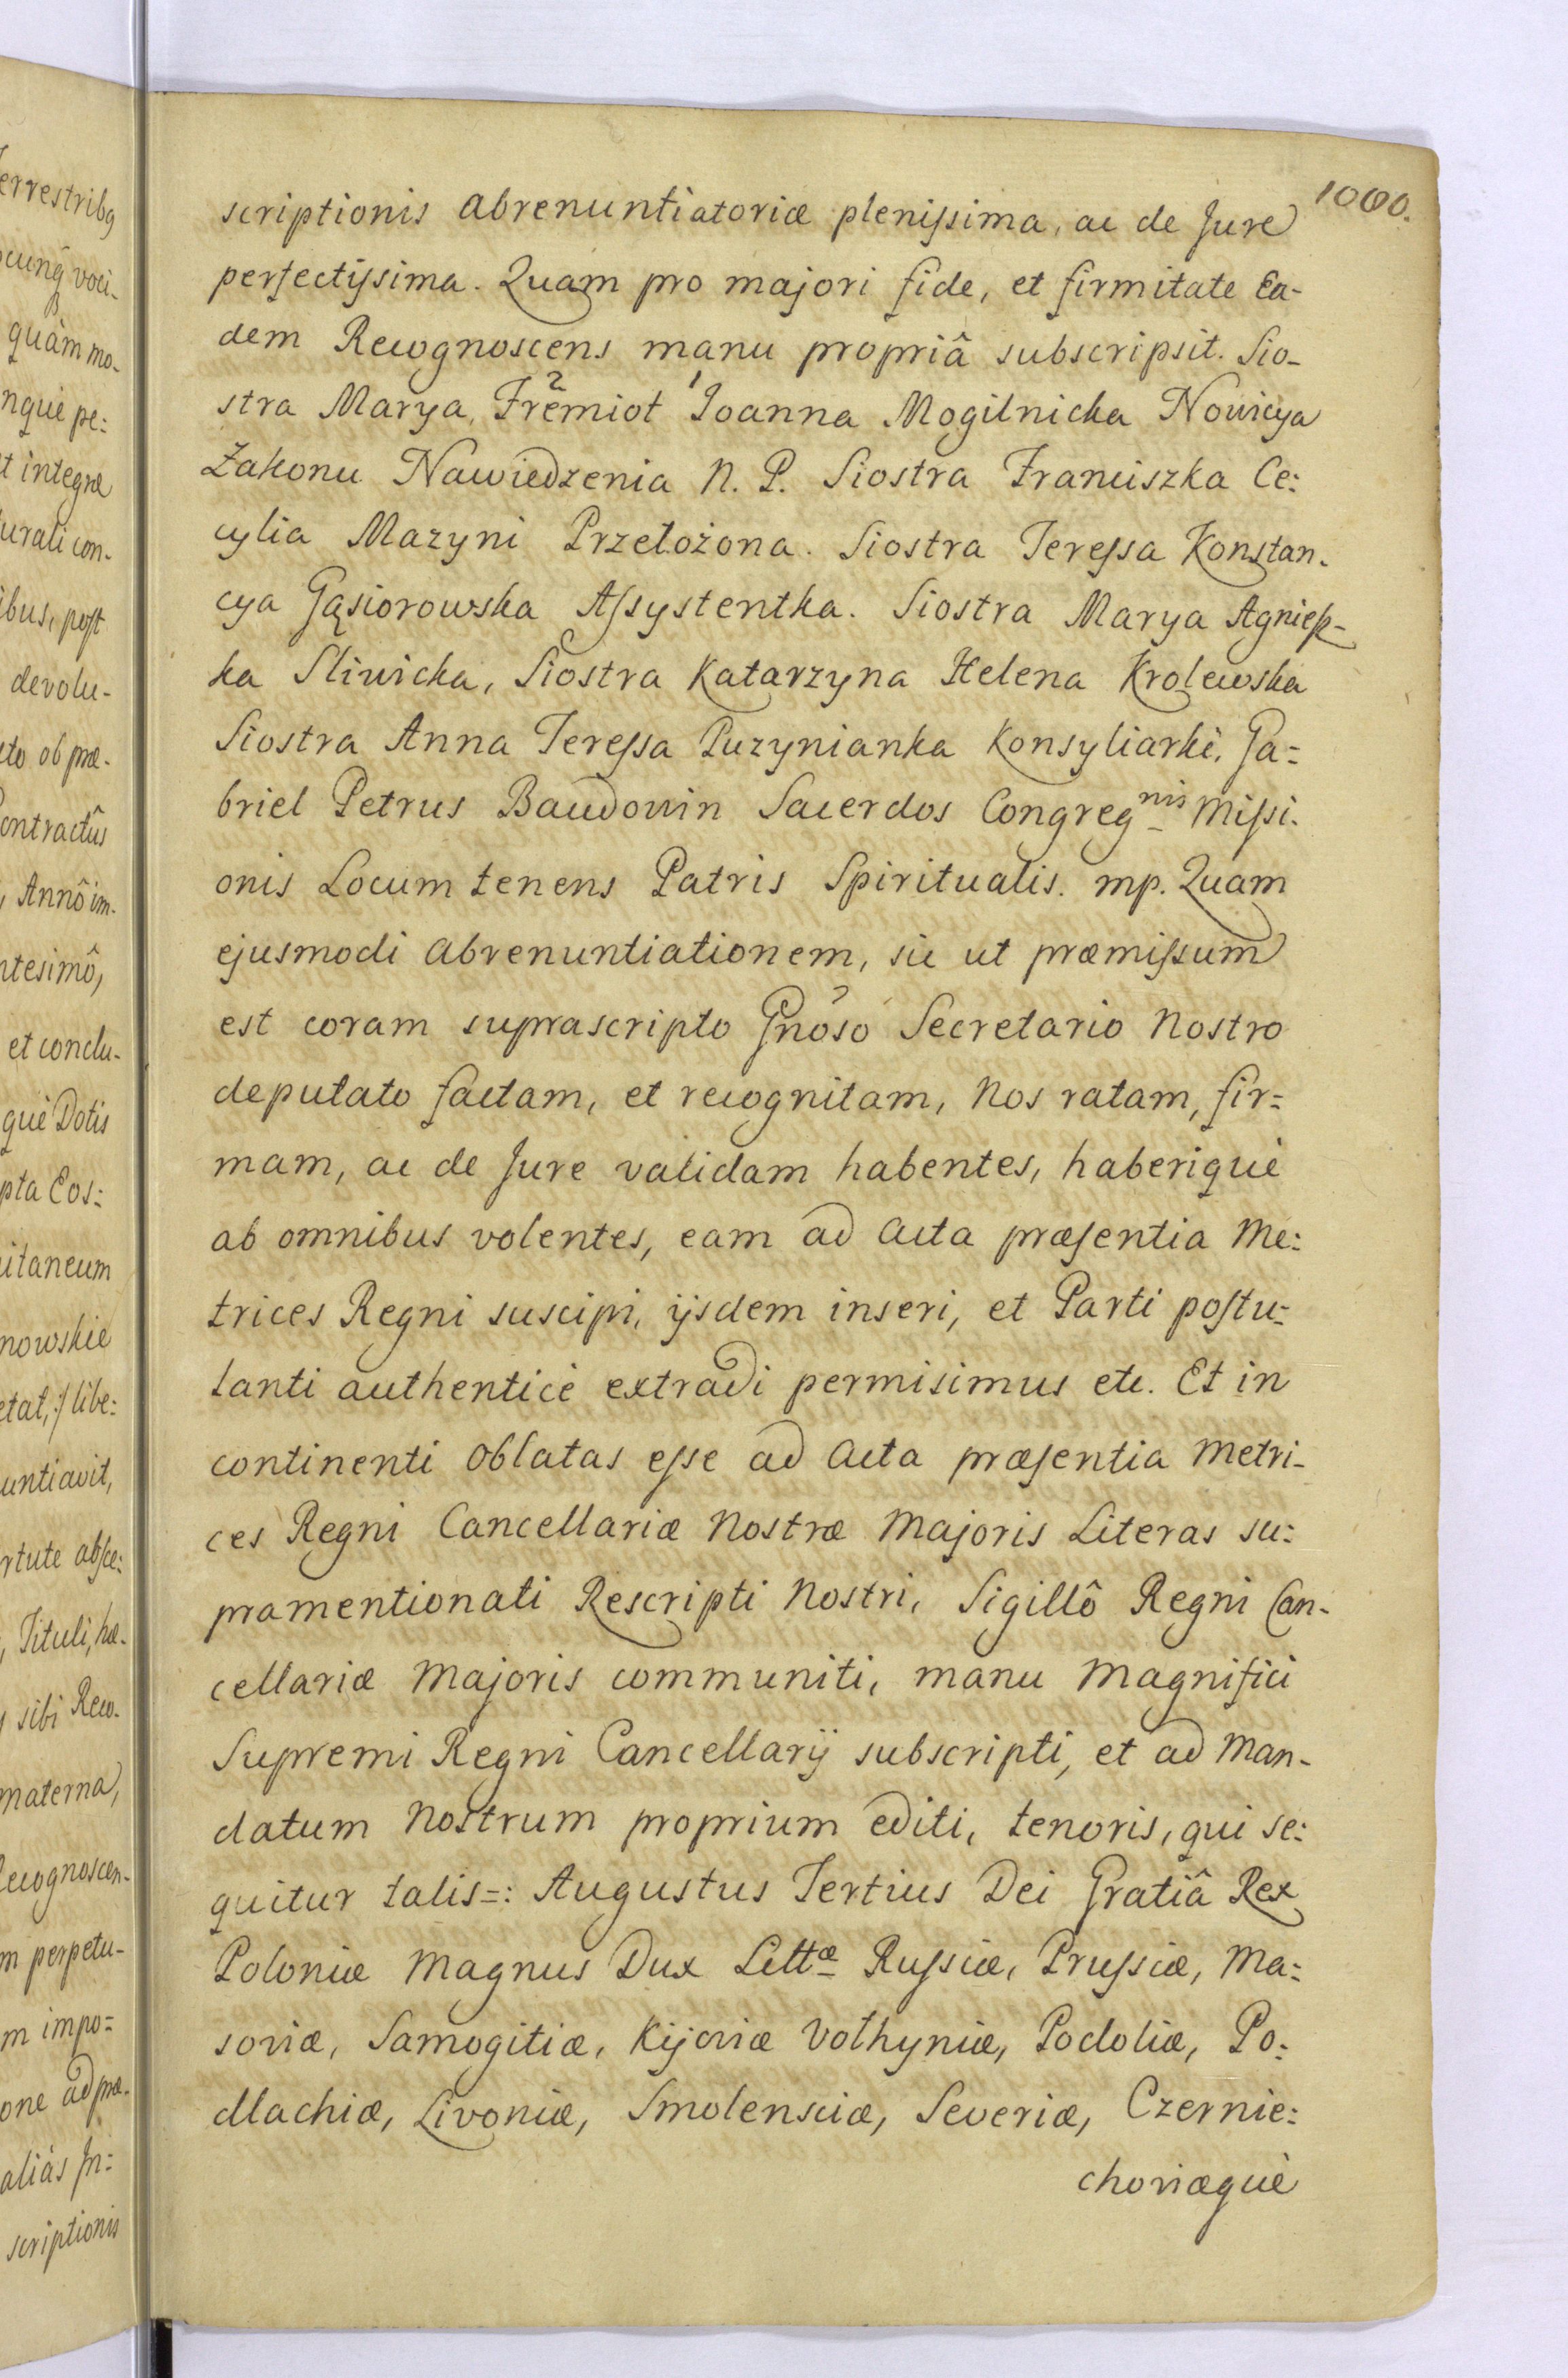 1000.
scriptionis abrenuntiatoriæ plenissima, ac de Jure
perfectissima. Quam pro majori fide, et firmitate Ea-
dem Recognoscens manu propriâ subscripsit. Sio-
stra Marya, Fremiot 2 1 Joanna Mogilnicka Nowicya
Zakonu Nawiedzenia N. P. Siostra Franciszka Ce:
cylia Mazyni Przełożona. Siostra Teressa Konstan-
cya Gąsiorowska Assystentka. Siostra Marya Agniesz-
ka Sliwicka, Siostra Katarzyna Helena Krolewska
Siostra Anna Teressa Puzynianka Konsyliarki. Ga=
briel Petrus Baudouin Sacerdos Congregnis Missi-
onis Locum tenens Patris Spiritualis. mp. Quam
ejusmodi abrenuntiationem, sic ut præmissum
est coram suprascripto Gnoso Secretario Nostro
deputato factam, et recognitam, Nos ratam, fir=
mam, ac de Jure validam habentes, haberiquè
ab omnibus volentes, eam ad Acta præsentia Me:
trices Regni suscipi, ijsdem inseri, et Parti postu-
lanti authenticè extradi permisimus etc. Et in
continenti oblatas esse ad Acta præsentia Metri-
ces Regni Cancellariæ Nostræ Majoris Literas su:
pramentionati Rescripti Nostri, Sigillô Regni Can-
cellariæ Majoris communiti, manu Magnifici
Supremi Regni Cancellarij subscripti, et ad Man-
datum Nostrum proprium editi, tenoris, qui se:
quitur talis=: Augustus Tertius Dei Gratiâ Rex
Poloniæ Magnus Dux Littæ Russiæ, Prussiæ, Ma=
soviæ, Samogitiæ, Kijoviæ Volhyniæ, Podoliæ, Po:
dlachiæ, Livoniæ, Smolensciæ, Severiæ, Czernie:
choviæquè